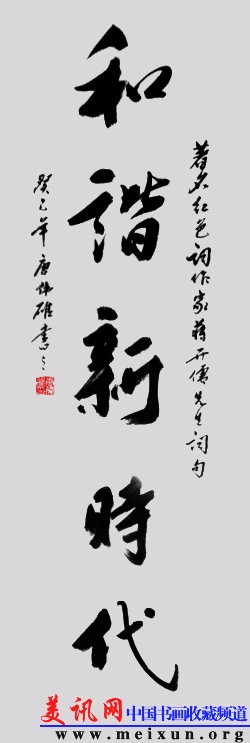 著名红色词作家蒋开儒先生词句
和諧新時代
癸巳年 唐伟雄書之
美讯网 中国书画收藏频道
www.meixun.org